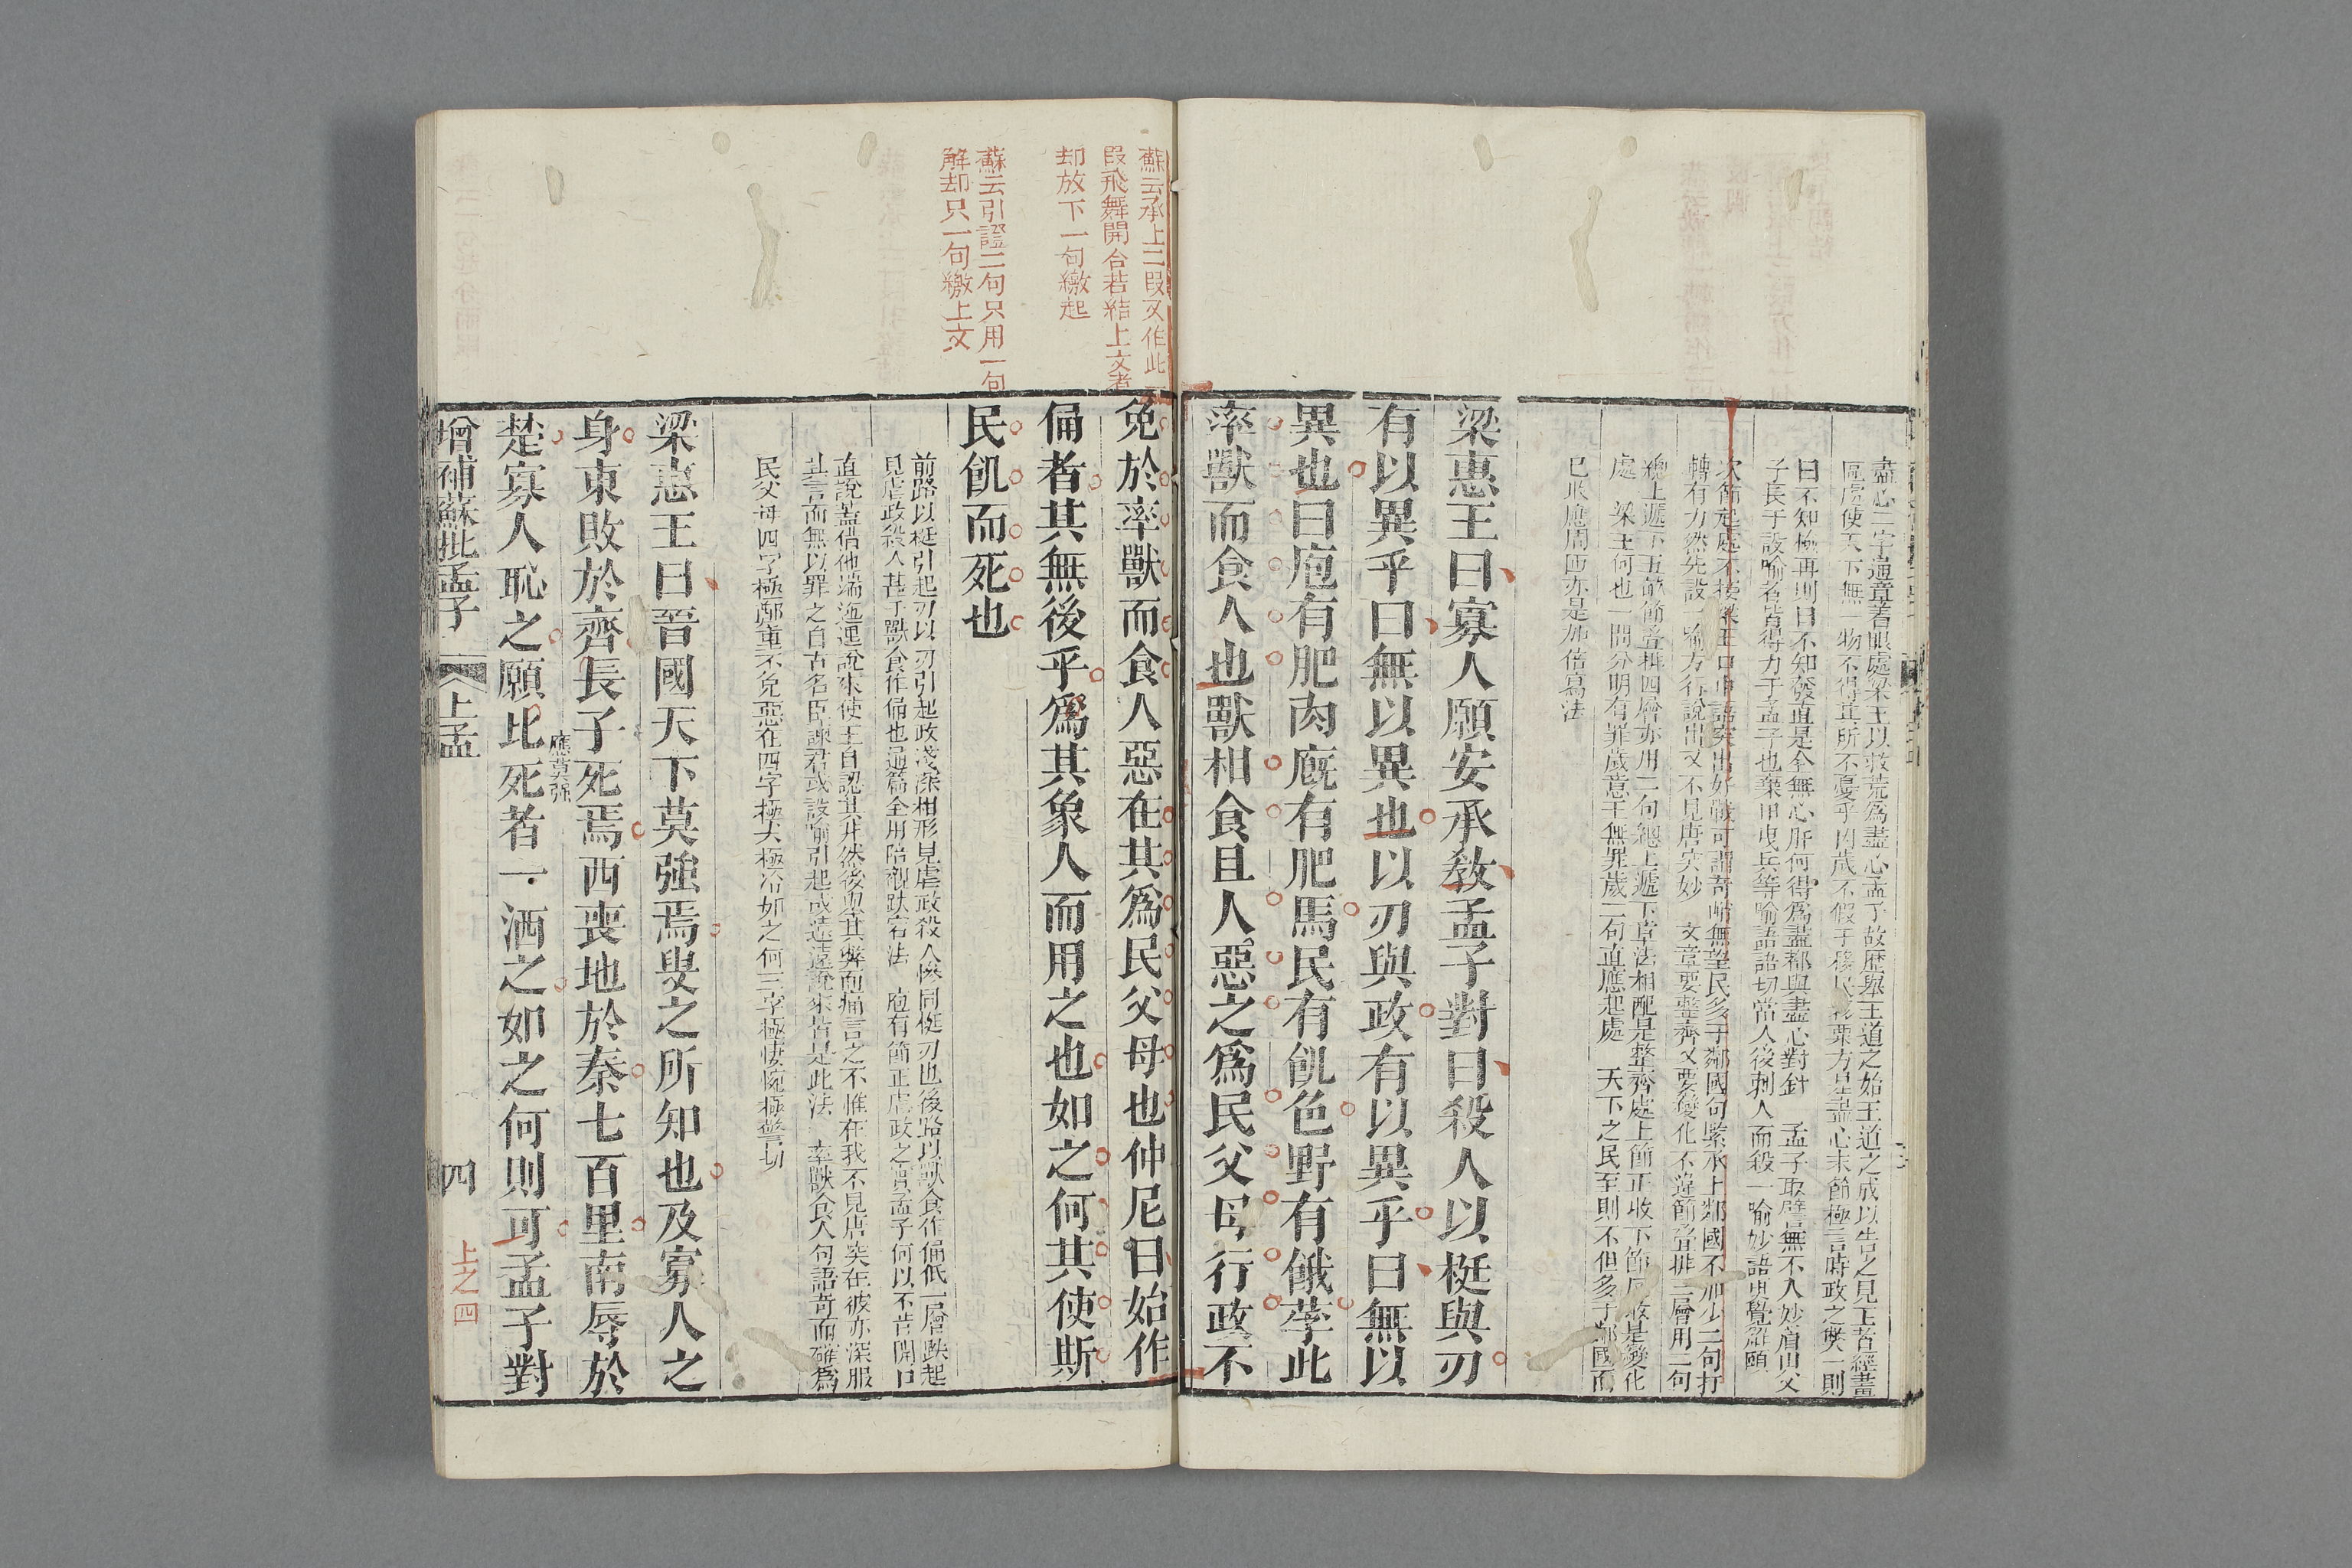 盡心二字通章著眼處梁王以救荒爲盡心孟子故歷舉王道之始王道之成以告之見王者經畫
區處使天下無一物不得其所不憂乎凶歲不假于移民移粟方是盡心末節極言時政之獘一則
曰不知檢再則曰不知發直是全無心肝何得爲盡都與盡心對針　孟子取譬無不入妙眉山父
子長于設喻者皆得力于孟子也棄甲曳兵等喻語語切當人後刺人而殺一喻妙語更覺解頤
次節起處不接梁王口中語突出好戰可謂奇峭無望民多于鄰國句緊承上鄰國不加少二句打
轉有力然先設一喻方行說出又不見唐突妙　文章要整齊又要變化不違節叠排三層用二句
總上遞下五畝節叠排四層亦用二句總上遞下章法相配是整齊處上節正收下節反收是變化
處　梁王何也一問分明有罪歲意王無罪歲二句直應起處　天下之民至則不但多于鄰國而
已收應周匝亦是加倍寫法
梁惠王曰寡人願安承敎孟子對曰殺人以梃與刃
有以異乎曰無以異也以刃與政有以異乎曰無以
異也曰庖有肥肉廐有肥馬民有飢色野有餓莩此
率獸而食人也獸相食且人惡之爲民父母行政不
蘇云承上二段又作此一
段飛舞開合若結上文者
却放下一句繳起
蘇云引證二句只用一句
解却只一句繳上文
免於率獸而食人惡在其爲民父母也仲尼曰始作
俑者其無後乎爲其象人而用之也如之何其使斯
民飢而死也
前路以梃引起刃以刃引起政淺深相形見虐政殺人慘同梃刃也後路以獸食作俑低一層跌起
見虐政殺人甚于獸食作俑也通篇全用陪襯跌宕法　庖有節正虐政之實孟子何以不肯開口
直說蓋借他端迤邐說來使王自認其非然後與其獘而痛言之不惟在我不見唐突在彼亦深服
其言而無以罪之自古名臣諫君或設喻引起或遠遠說來皆是此法　率獸食人句語奇而確爲
民父母四字極鄭重不免惡在四字極大極冷如之何三字極悽惋極警切
梁惠王曰晉國天下莫強焉叟之所知也及寡人之
身東敗於齊長子死焉西喪地於秦七百里南辱於
應莫强
楚寡人恥之願比死者一洒之如之何則可孟子對
增補蘇批孟子　上孟　四
上之四